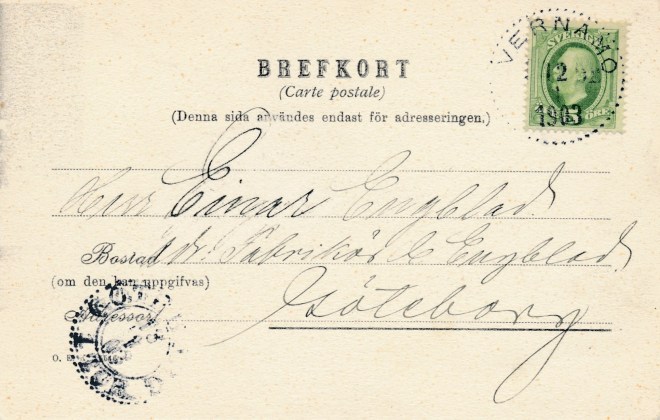 BREFKORT
(Carte postale)
(Denna sida användes endast för adresseringen.)
VERNAMO
12
1903
SVERIGE
ÖRE
Herr Einar Engblad
Bostad
adr. Fabrikör Engblad
(om den kan uppgifvas)
Göteborg